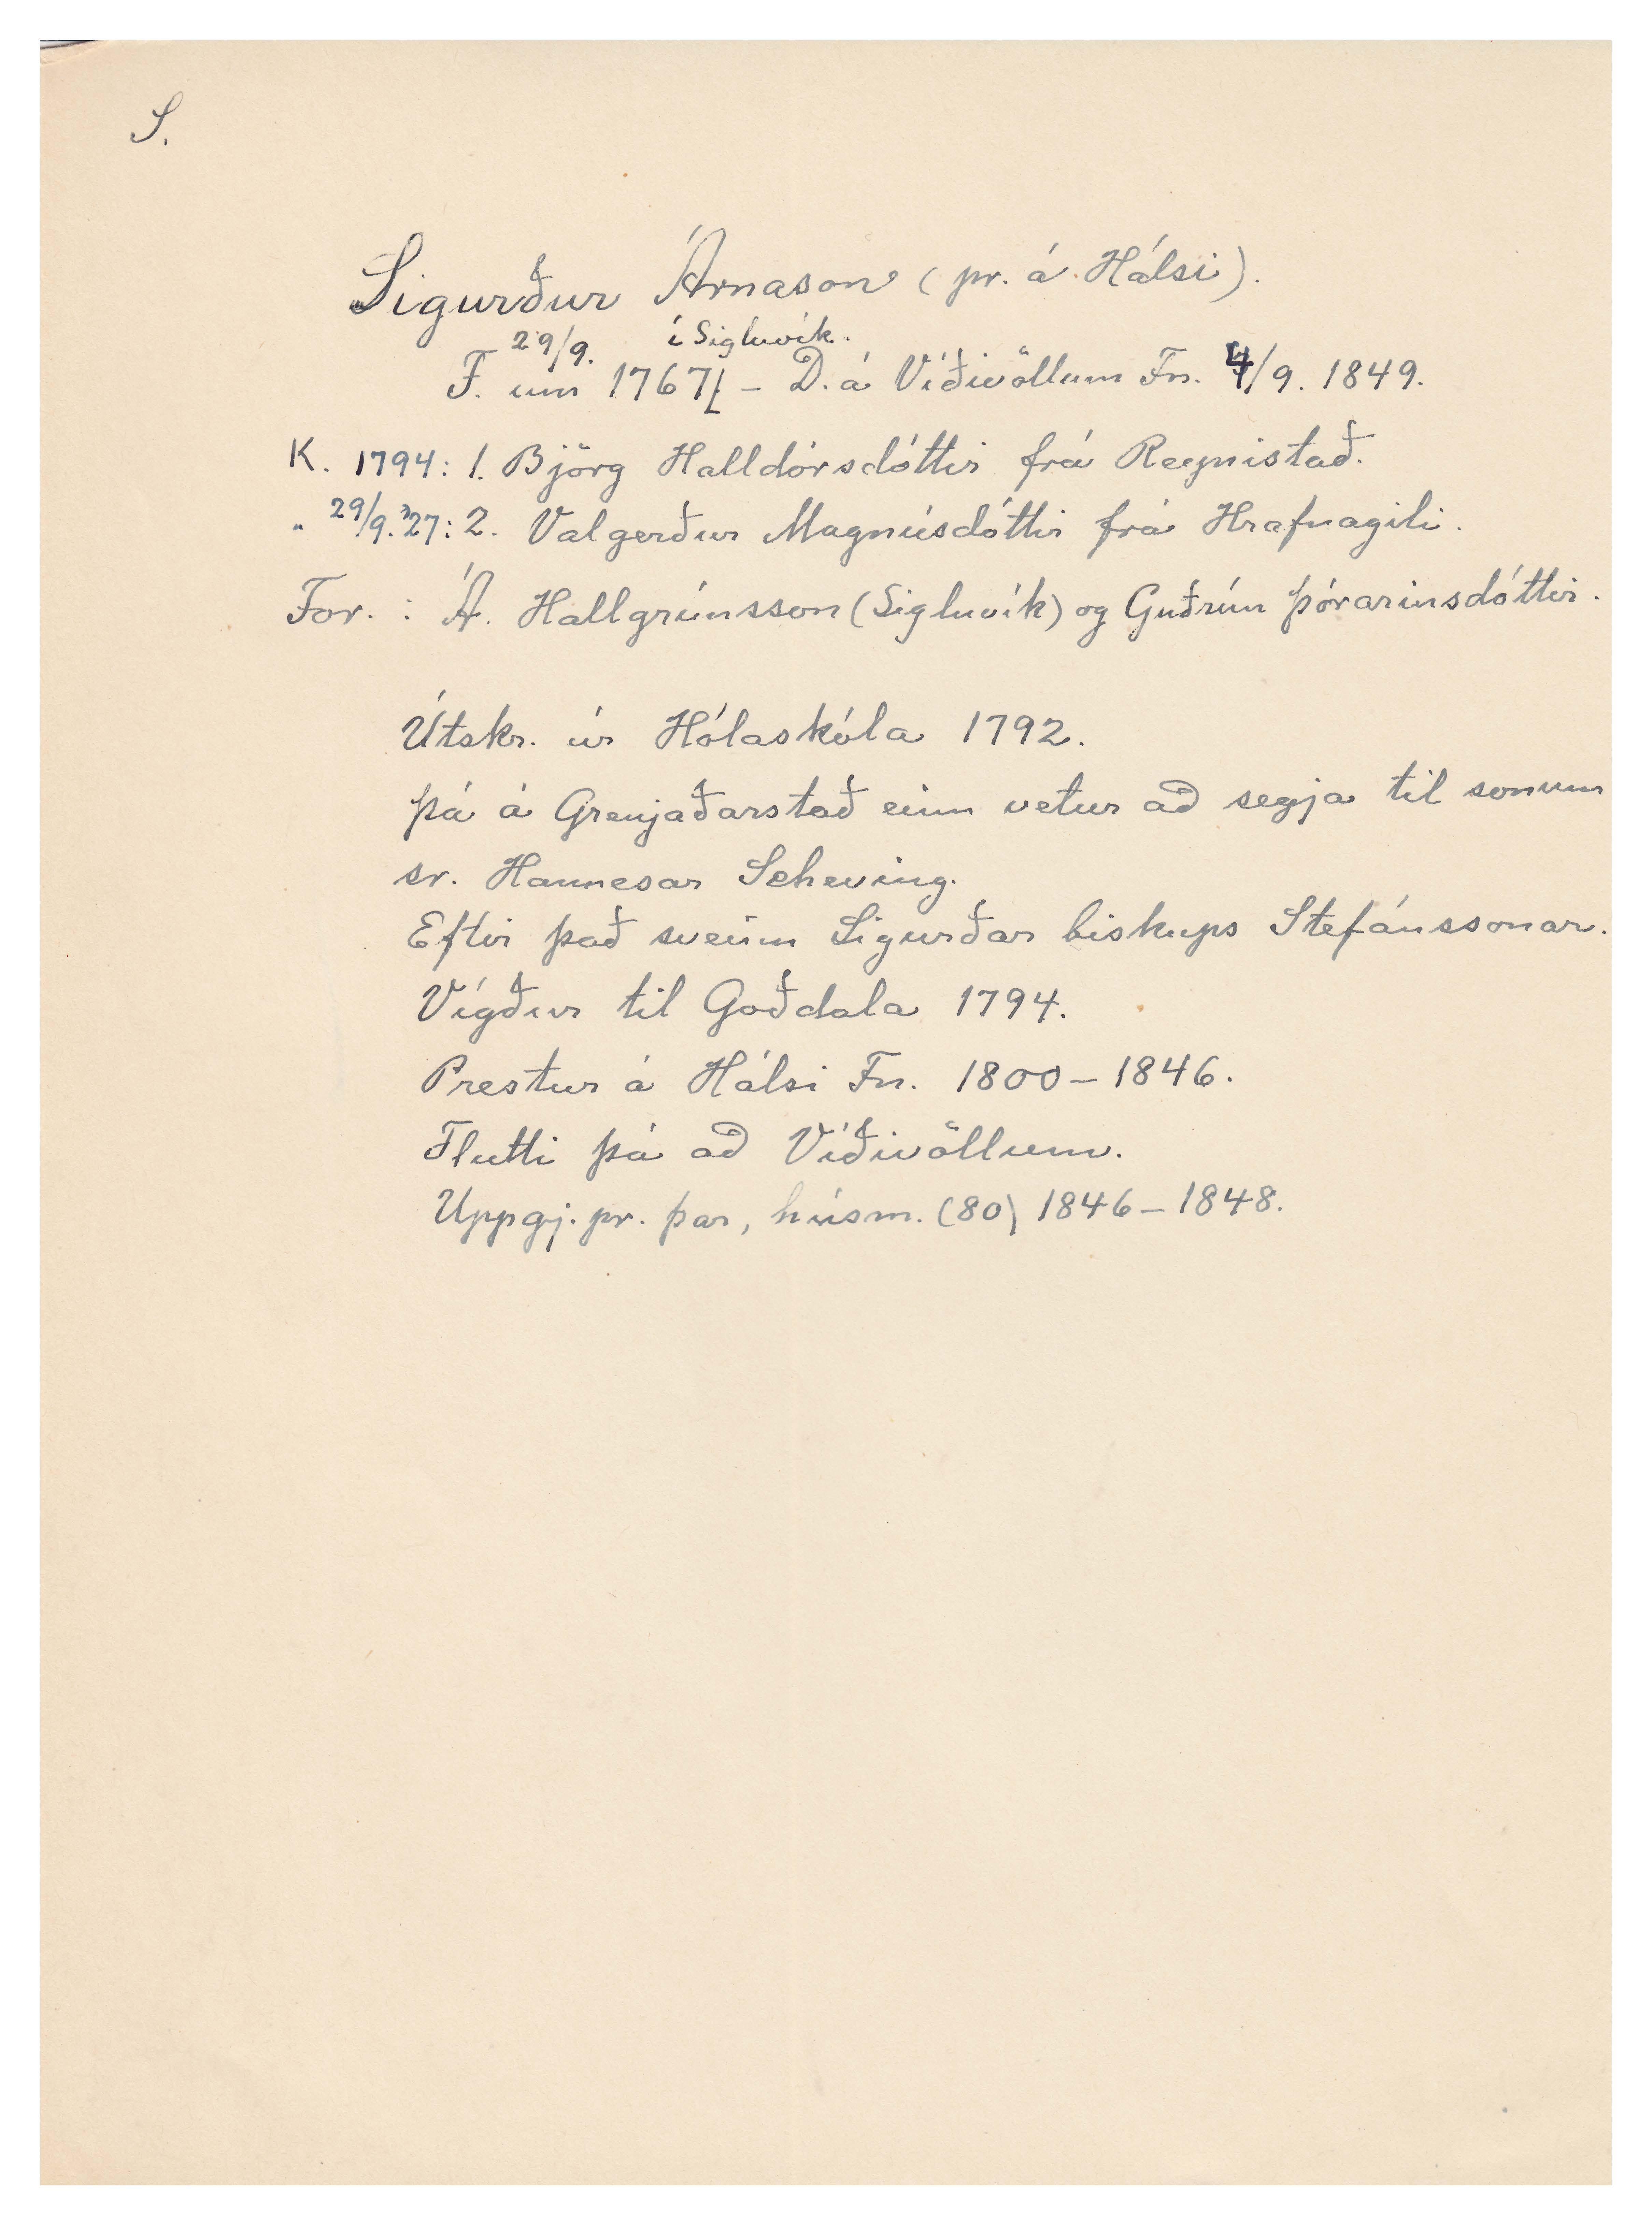 S.
Sigurður Árnason (pr. á Hálsi).
29/9. í Sigluvík.
F. um 1767⌊ - D. á Víðivöllum Fn. 4/9. 1849.
K. 1794: 1. Björg Halldórsdóttir frá Reynistað.
" 29/9.'27: 2. Valgerður Magnúsdóttir frá Hrafnagili.
For. : Á. Hallgrímsson (Sigluvík) og Guðrún Þórarinsdóttir.
Útskr. úr Hólaskóla 1792.
Þá á Grenjaðarstað einn vetur að segja til sonum
sr. Hannesar Scheving.
Eftir það sveinn Sigurðar biskups Stefánssonar.
Vígður til Goðdala 1794.
Prestur á Hálsi Fn. 1800-1846.
Flutti þá að Víðivöllum.
Uppgj. pr. þar, húsm. (80) 1846-1848.